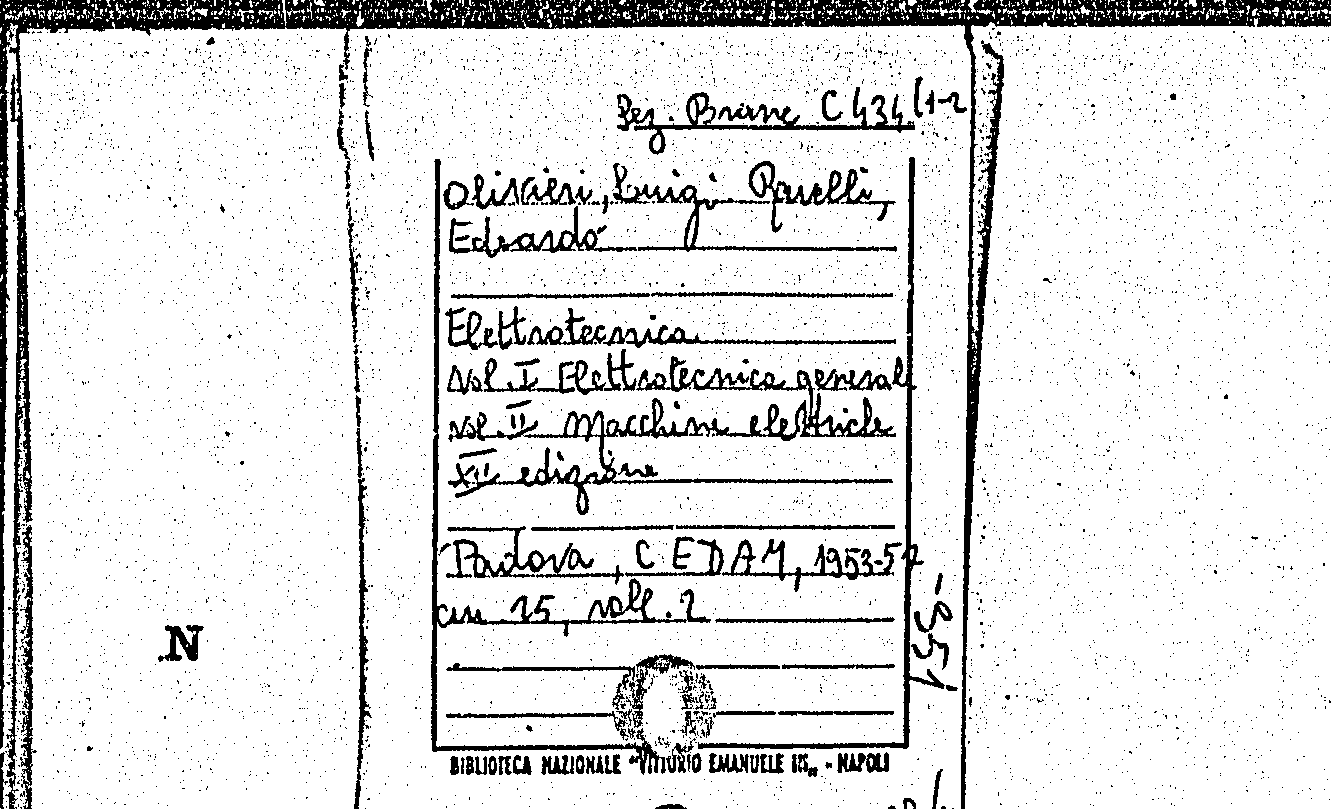 Sez. Branc C 434 (1-2
Olivieri, Luigi, Ravelli,
Edoardo
Elettrotecnica
vol. I Elettrotecnica generale
vol. II Macchine elettriche
XII edizione
Padova, CEDAM, 1953-54
cm 25, voll. 2
N
BIBLIOTECA NAZIONALE "VITTORIO EMANUELE III" - NAPOLI